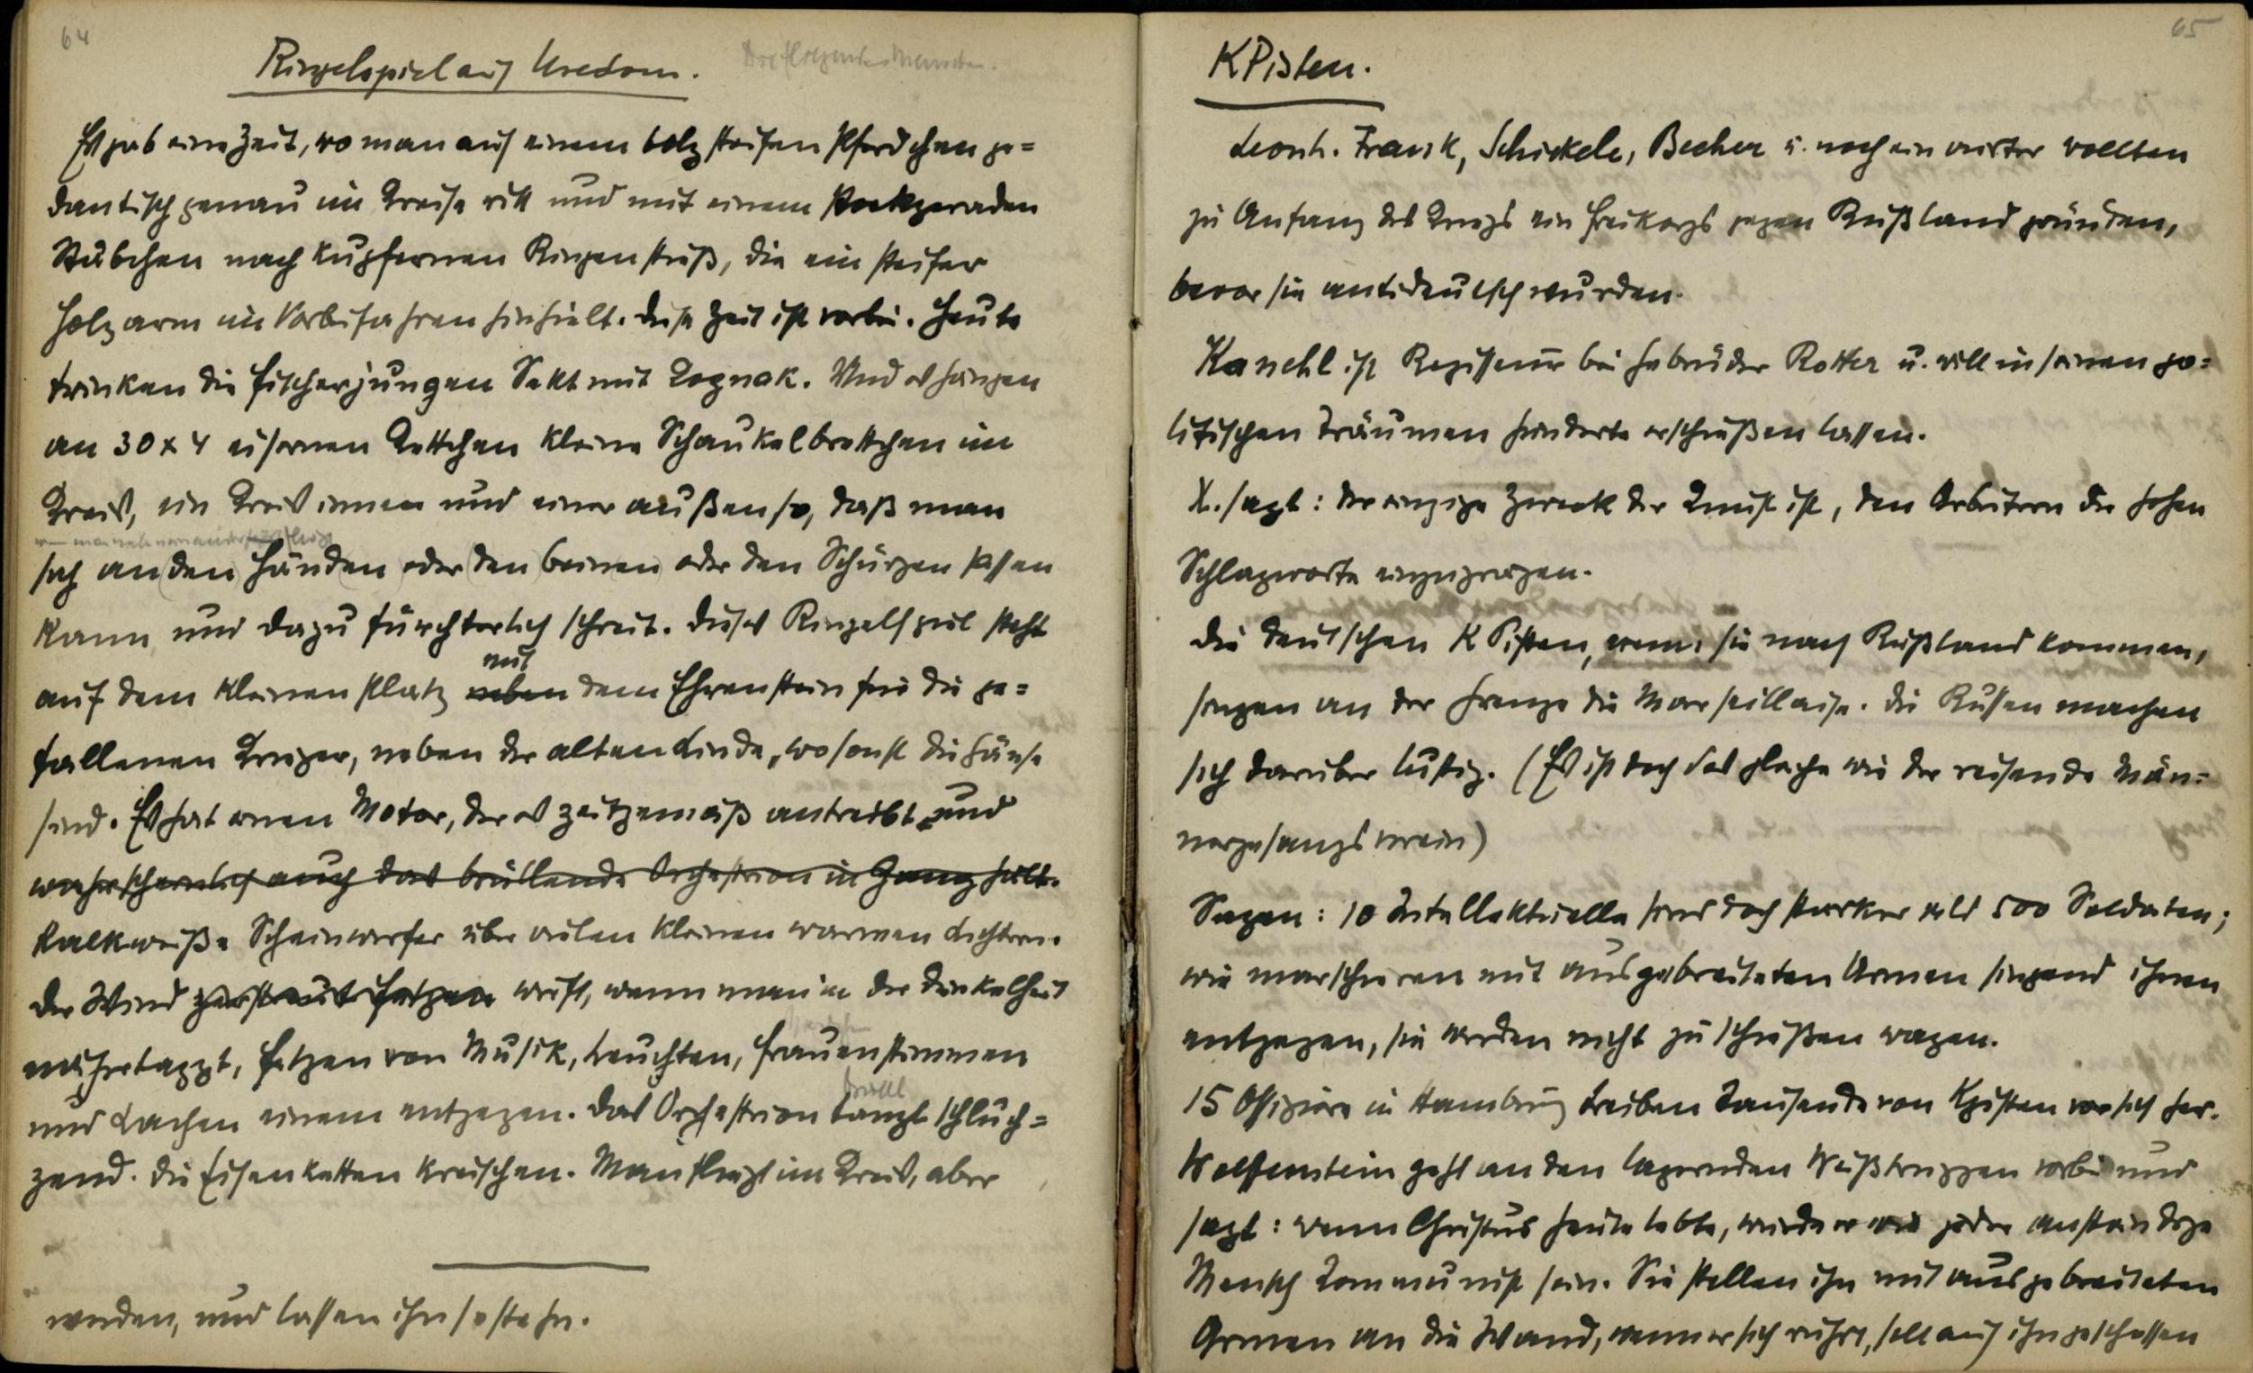 64
Ringelspiel auf Usedom.
Die fliegenden Menschen.
Es gab eine Zeit, wo man auf einem holzsteifen Pferdchen pe=
dantisch genau im Kreise ritt und mit einem stockgeraden
Stäbchen nach kupfernen Ringen stieß, die ein steifer
Holzarm im Vorbeifahren hinhielt. Diese Zeit ist vorbei. Heute
trinken die Fischerjungen Sekt mit Kognak. Und es hängen
an 30 x 4 eisernen Kettchen kleine Schaukelbrettchen im
Kreis, ein Kreis innen und einer außen so, daß man
sich an den Händen oder den Beinen oder den Schürzen fassen
kann und dazu fürchterlich schreit. Dieses Ringelspiel steht
mit
auf dem kleinen Platz neben dem Ehrenstein für die ge=
fallenen Krieger, neben der alten Linde, wo sonst die Gänse
sind. Es hat einen Motor, der es zeitgemäß antreibt und
wahrscheinlich auch das brüllende Orchestrion in Gang hält.
kalkweiße Scheinwerfer über vielen kleinen warmen Lichtern.
Der Wind zerstreut Fetzen wirft, wenn man in der Dunkelheit
näher tappt, Fetzen von Musik, Leuchten, Frauenstimmen
und Lachen einem entgegen. Das Orchestrion tanzt schluch=
zend. Die Eisenketten kreischen. Man fliegt im Kreis, aber
werden, und lassen ihn so stehn.
65
KPisten.
Leonh. Frank, Schickele, Becher u. noch ein vierter wollten
zu Anfang des Kriegs ein Freikorps gegen Rußland gründen,
bevor sie antideutsch wurden.
Kanehl ist Regisseur bei Gebrüder Rotter u. will in seinen po=
litischen Träumen Hunderte erschießen lassen.
X. sagt: der einzige Zweck der Kunst ist, den Arbeitern die hohen
Schlagworte einzuprägen.
Die deutschen KPisten, wenn sie nach Rußland kommen,
singen an der Grenze die Marseillaise. Die Russen machen
sich darüber lustig. (Es ist doch das gleiche wie der reisende Män=
nergesangsverein)
Sagen: 10 Intellektuelle sind doch stärker als 500 Soldaten;
wir marschieren mit ausgebreiteten Armen singend ihnen
entgegen, sie werden nicht zu schießen wagen.
15 Offiziere in Hamburg treiben Tausende von Kpisten vor sich her.
Wolfenstein geht an den lagernden Weißtruppen vorbei und
sagt: wenn Christus heute lebte, würde er wie jeder anständige
Mensch Kommunist sein. Sie stellen ihn mit ausgebreiteten
Armen an die Wand, wenn er sich rührt, soll auf ihn geschossen